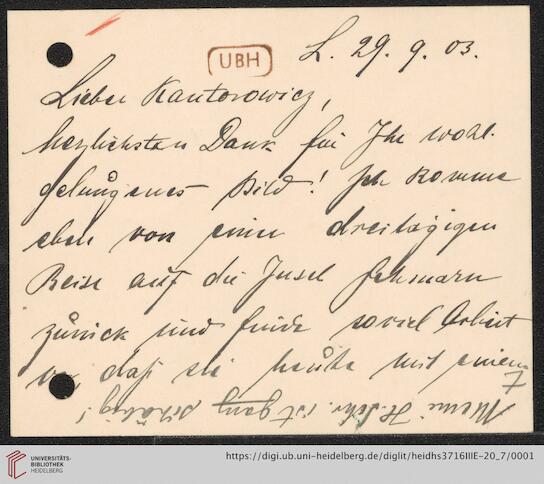 UBH
L. 29. 9. 03.
Lieber Kantorowicz,
herzlichsten Dank für Ihr wohl-
gelungenes Bild! Ich komme
eben von einer dreitägigen
Reise auf die Insel Fehmarn
zurück und finde soviel Arbeit
vor, daß sie heute mit einem
7
Meine ist ganz
UNIVERSITÄTS-
BIBLIOTHEK
HEIDELBERG
https://digi.ub.uni-heidelberg.de/diglit/heidhs3716IIIE-20_7/0001